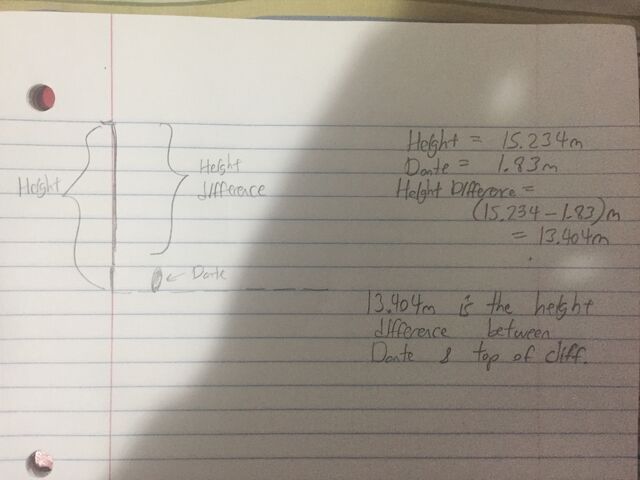 Height
Height
difference
← Dante
Height = 15.234m
Dante = 1.83m
Height Difference =
(15.234-1.83)m
= 13.404m
13.404m is the height
difference between
Dante & top of cliff.